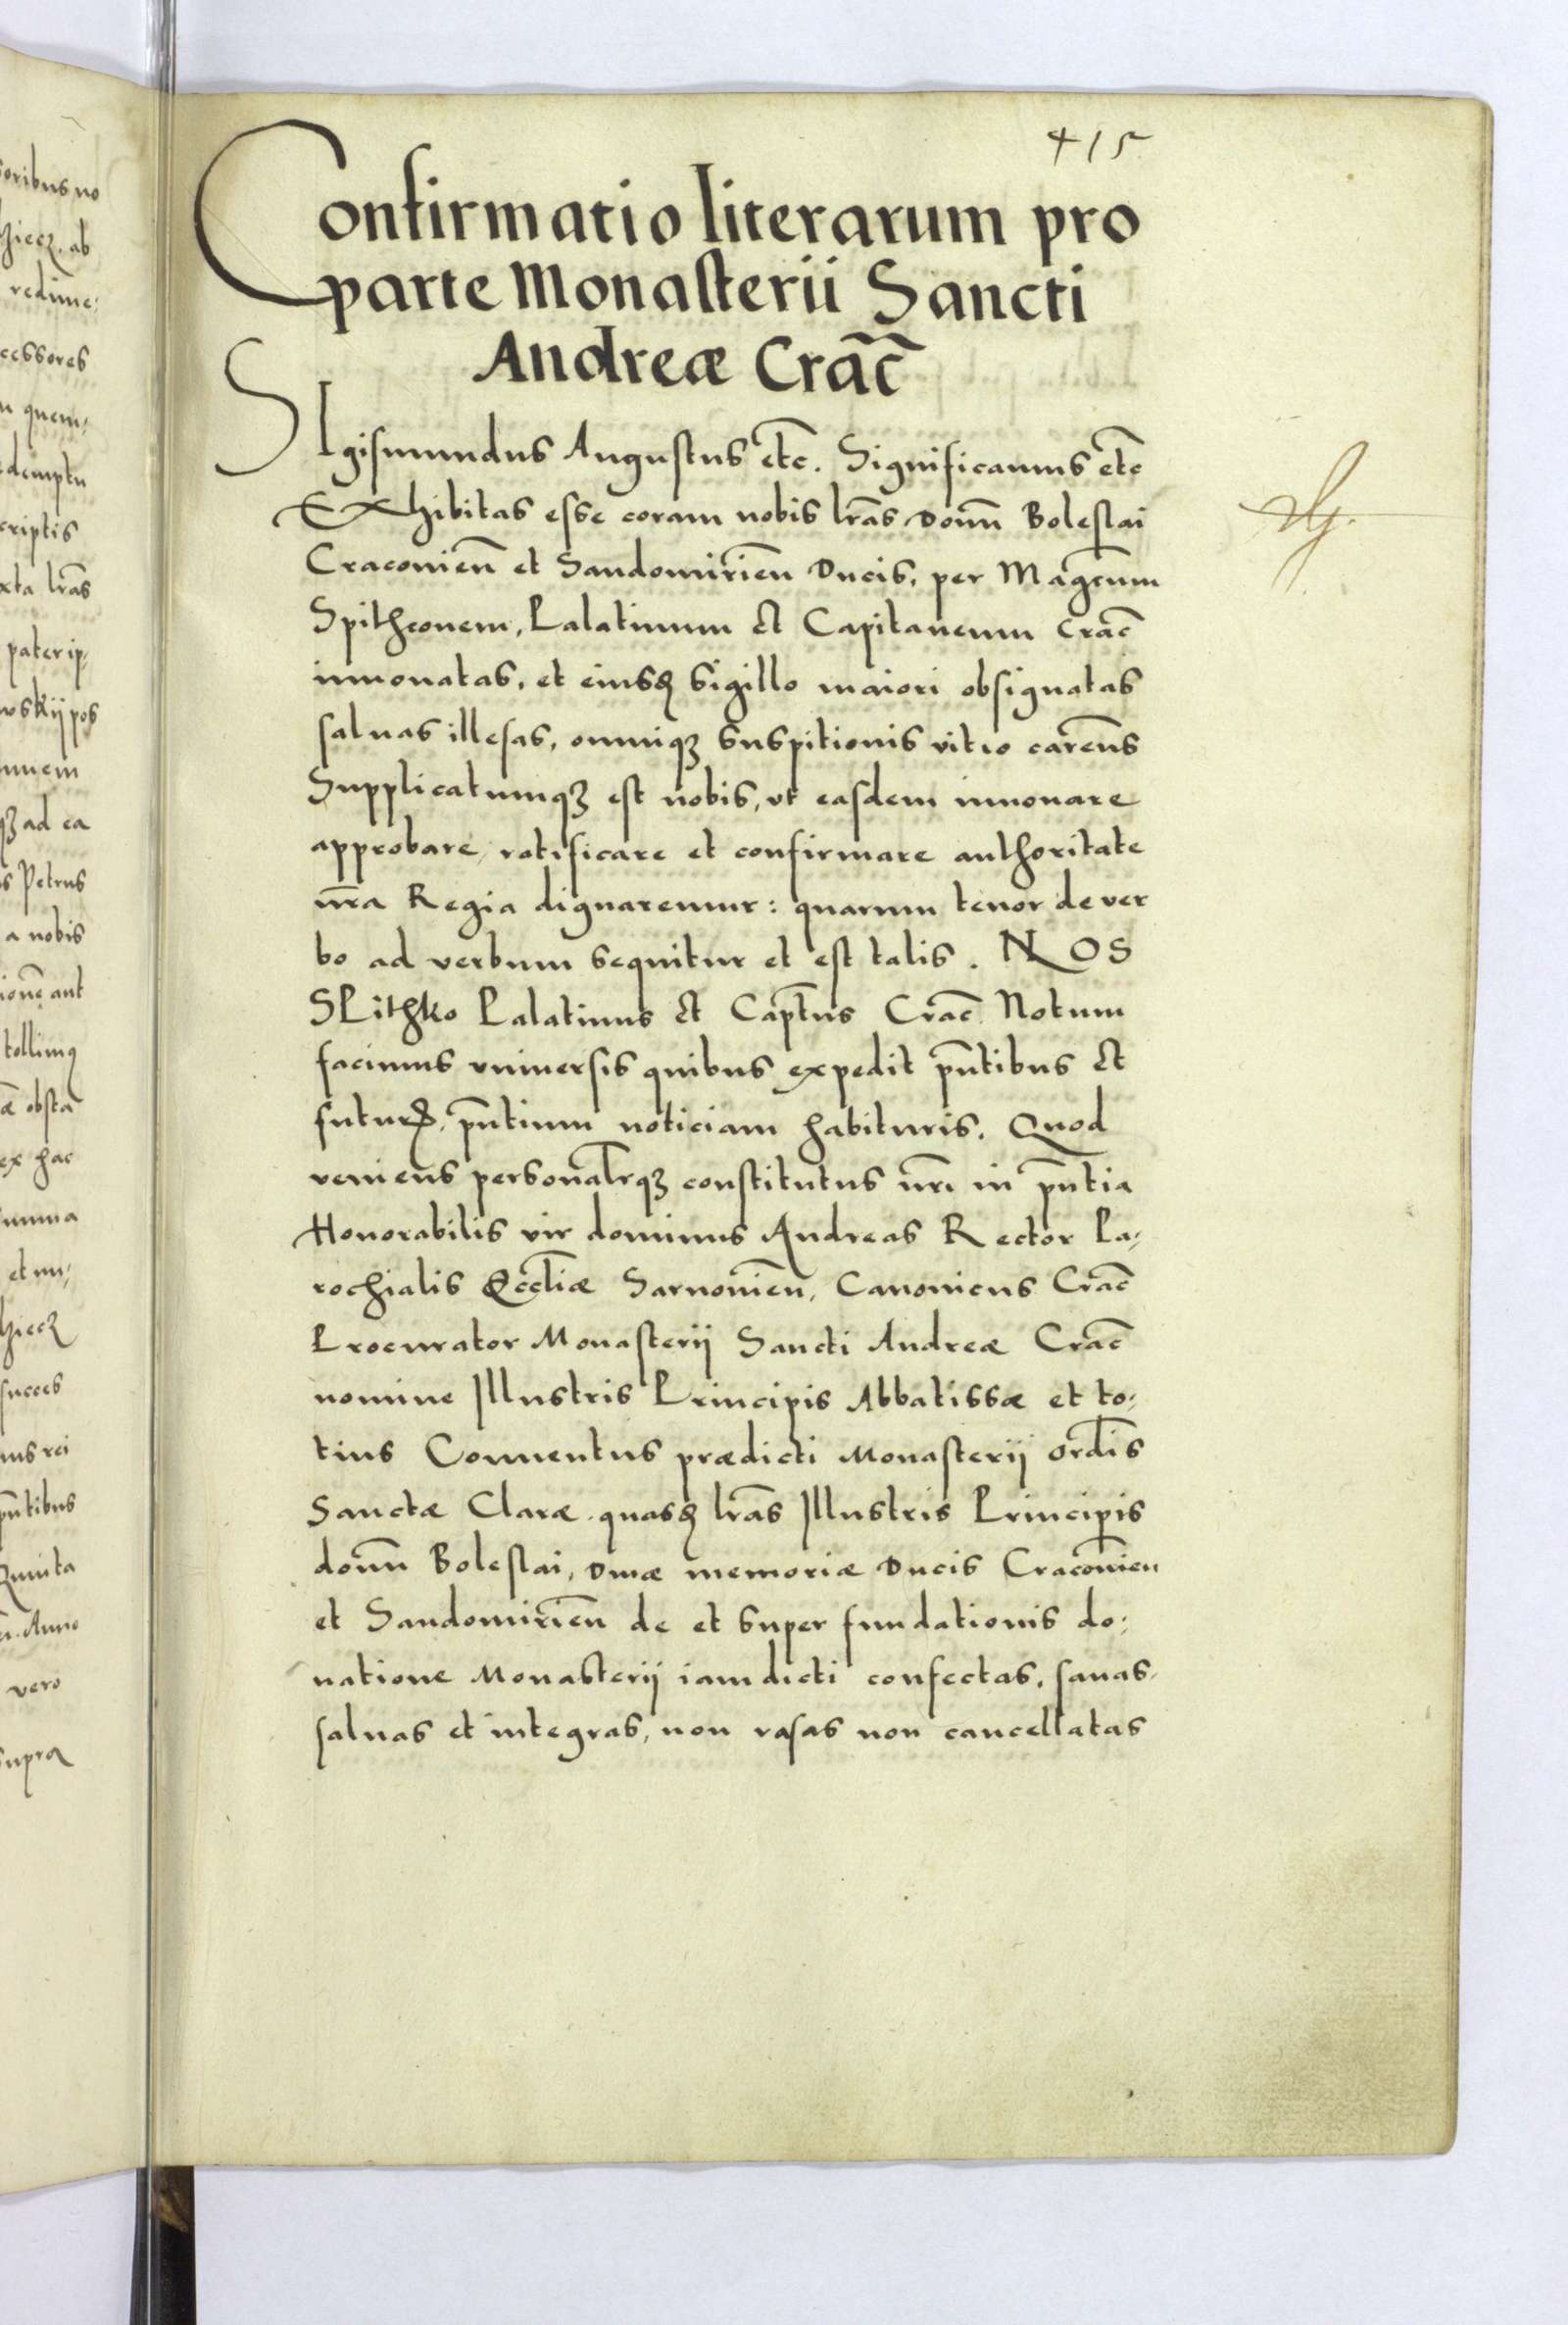 415
Confirmatio literarum pro
parte Monasterii Sancti
Andreæ Crac̃
SIgismundus Augustus etc̃. Significamus etc̃
EXhibitas esse coram nobis lr̃as Domñ Boleslai
Craconieñ et Sandomirieñ Ducis, per Mag̃cum
Spithconem, Palatinum et Capitaneum Crac̃
innouatas, et eiusꝗ sigillo maiori obsignatas
saluas illesas, omniqꝫ suspitionis vitio careñs
Supplicatumqꝫ est nobis, vt easdem innouare
approbare, ratificare et confirmare authoritate
nr̃a Regia dignaremur: quarum tenor de ver
bo ad verbum sequitur et est talis. NOS
SPithko Palatinus et Capt̃us Crac̃ Notum
facimus vniuersis quibus expedit pñtibus et
futurꝭ, pñtium noticiam habituris. Quod
veniens personalr̃qꝫ constitutus nr̃i in pñtia
Honorabilis vir dominus Andreas Rector Pa-
rochialis Eccl̃iæ Sarnouieñ, Canonicus Crac̃
Procurator Monasterij Sancti Andreæ Crac̃
nomine Illustris Principis Abbatissæ et to-
tius Conuentus prædicti Monasterij ord̃is
Sanctæ Claræ. quasꝗ lr̃as Illustris Principis
domñ Boleslai, Diuæ memoriæ Ducis Craconieñ
et Sandomirieñ de et super fundationis do-
natione Monasterij iam dicti confectas, sanas,
saluas et integras, non rasas non cancellatas
soribus no
hiecz. ab
redime-
cessores
n quem-
demptu
criptis
xta lr̃as
pater ip-
wskij pos
qꝫ ad ea
s Petrus
a nobis
ionẽ aut
tollimꝗ
æ obsta
ex hac
umma
et nu-
hiecz
succes
ius rei
pñtibus
Anno
vero
supra